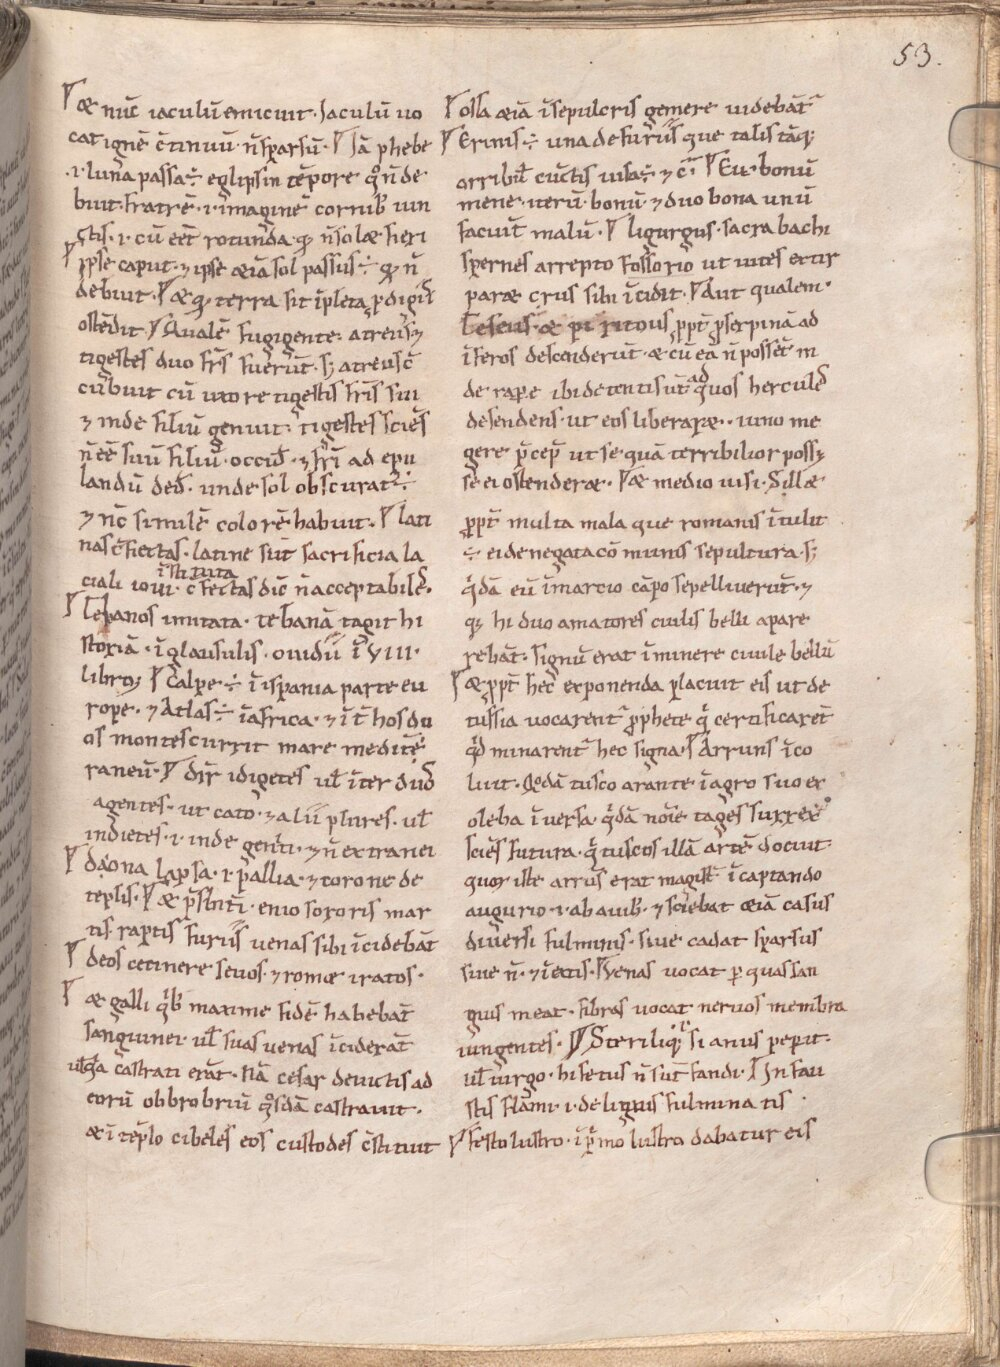 53.
¶ æ nūc iaculū emicuit. Iaculū uo
cat ignē c̄tinuū. n̄ sparsū. ¶ Iā phebe
.i. luna passa ÷ eglipsin tēpore qͦ n̄ de
buit. fratrē .i. imaginē corrub̄ iun
ctis .i. cū eēt rotunda. qͥ n̄ solæ fieri
¶ Ipse caput. ⁊ ipse æiā sol passus ÷ qͥ n̄
debuit. ¶ æ qͥ terra sit īpleta pdigiis
ostēdit. ¶ Qualē fugigente. atreus ⁊
tigestes duo fr̄s fuerūt. sꝫ atreus c̄
cubuit cū uxore tigestis fr̄is sui
⁊ inde filiū genuit. tigestes sciēs
n̄ eē suū filiū. occid̄. ⁊ fr̄i ad epu
landū ded̄. unde sol obscurat' ÷
⁊ nc̄ similē colorē habuit. ¶ lati
nas c̄fectas. latine sūt sacrificia la
ciali ioui. īstituta c̄fectas dic̄ n̄ acceptabiles.
¶ Tebanos imitata. tebanā tagit hi
storiā. ī glausulis. ouidiū ī VIII.
libroꝝ ¶ Calpe ÷ ī ispania parte eu
rope. ⁊ Atlas ÷ ī africa. ⁊ īt̄ hos du
os montes currit mare meditē
raneū. ¶ Dn̄r idigetes ul̄ īter duos
agentes. ut cato. ⁊ alii plures. ul̄
indietes .i. inde geniti. ⁊ n̄ extranei
¶ Dāona lapsa .i. pallia. ⁊ corone de
teplis. ¶ æ p̄sinti. enio sororis mar
tis raptis furiis uenas sibi īcidebāt
¶ deos cecinere seuos. ⁊ rome iratos.
¶ æ galli qͥb' maxime fidē habebāt
sanguinei. ul̄ suas uenas īciderāt
ul̄ qͥa castrati erāt. Nā cesar deuictis ad
eorū obbrobriū qͦsdā castrauit.
æ ī tēplo cibeles eos custodes c̄stituit
¶ ossa æiā ī sepulcris gemere uidebāt'
¶ Erinis ÷ una de furiis que talis tāq;
arribul̄ cūctis uisa ÷ ⁊ c̄. ¶ Eu. bonū
mene. iterū. bonū. ⁊ duo bona unū
faciūt malū. ¶ ligurgus. sacra bachi
spernes arrepto fossorio ut uites extir
paræ crus sibi īcidit. ¶ Aut qualem.
Teseus. æ piritous ppt̄ pserpinā ad
īferos descenderūt. æ cū eā n̄ possēt in
de rape. ibi detenti sūt. ad quos herculēs
desendens. ut eos liberaræ. iuno me
gere p̄cep̄ ut se quā terribilior poss⁊
se ei ostenderæ. ¶ æ medio uisi. Sillæ
ppt̄ multa mala que romanis ītulit
÷ ei denegata cōmunis sepultura. sꝫ
qͥdā eū ī marcio cāpo sepelliuerūt. ⁊
qͥ hi duo amatores ciuilis belli apare
rebāt. signū erat īminere ciuile bellū
¶ æ ppt̄ hec̄ exponenda placuit eis ut de
tussia uocarent' pphete qͥ certificarēt
qͥd minarent' hec signa. ¶ Arruns īco
luit. Qͦdā tusco arante ī agro suo ex
ole ba ī uersa qͥdā nōie tages surrexē
sciēs futura. qͥ tuscos illā artē docuit
quoꝝ iste arrus erat magist̄ ī captando
augurio .i. ab auib'. ⁊ sciebat æiā casus
diuersi fulminis. siue cadat sparsus
siue n̄. ⁊ ī extis. ¶ Venas uocat p quas san
guis meat. fibras uocat neruos membra
iungentes. ¶ Steriliqͥ; si anus peperit.
ul̄ uirgo. hi fetus n̄ sūt fandi. ¶ Infau
stis flāmi .i. de lignis fulminatis .
¶ Festo lustro. ī p̄mo lustro dabatur eis